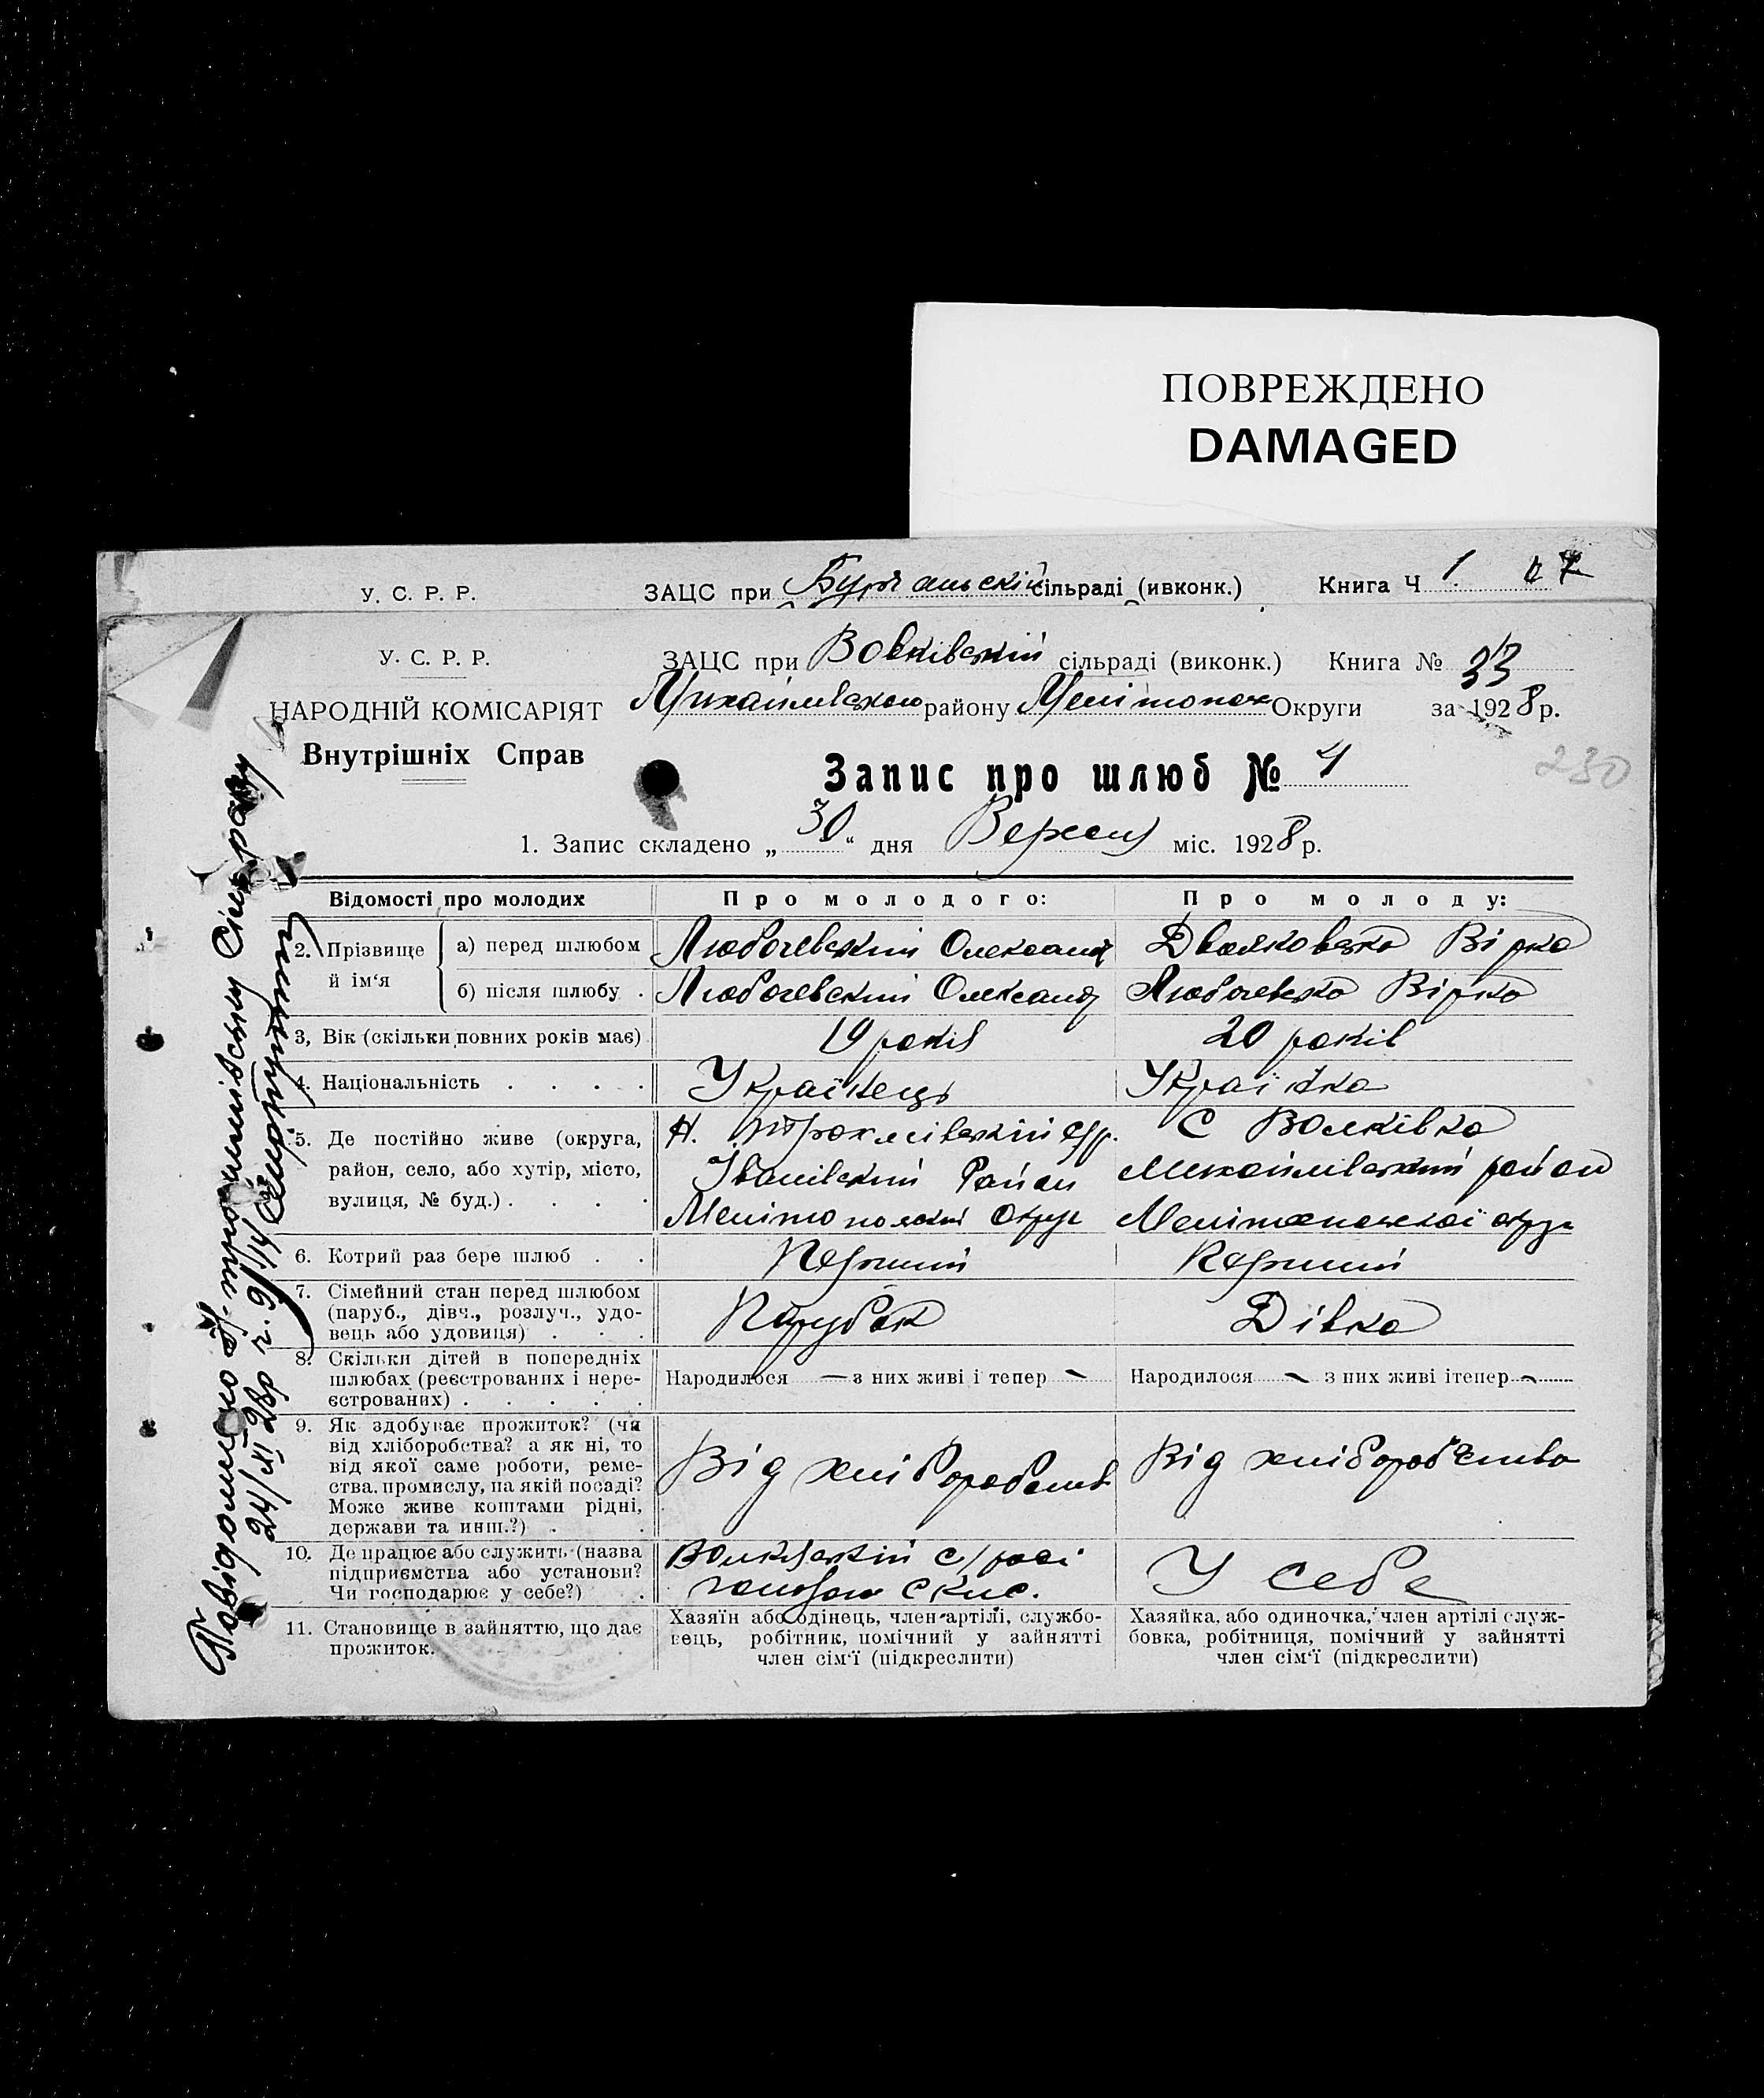 ПОВРЕЖДЕНО
DAMAGED
У. С. Р. Р. ЗАЦС при сільраді (ивконк.) Книга Ч 1
У. С. Р. Р. ЗАЦС при Вовківській сільраді (виконк.) Книга № 33
НАРОДНІЙ КОМІСАРІЯТ Михайлівського району Мелітопол Округи за 1928 р.
Внутрішніх Справ
Запис про шлюб № 4
230
1. Запис складено „30“ дня Вересня міс. 1928 р.
Відомості про молодих Про молодого: Про молоду:
2. Прізвище й ім‘я а) перед шлюбом Любочевский Олександ Вірка
б) після шлюбу . Любочевский Олександ Любочевська Вірка
3, Вік (скільки повних років має) 19 років 20 років
4. Національність . . . . Українець Українка
5. Де постійно живе (округа, Н. С Волківка
район, село, або хутір, місто, Іванівский Район Михайлівський район
вулиця, № буд.) . . . . Мелітопольский Округ Мелітопольської округи
6. Котрий раз бере шлюб . . Перший Перший
7. Сімейний стан перед шлюбом
(паруб., дівч., розлуч., удо-
вець або удовиця) . . . Парубок Дівка
8. Скільки дітей в попередніх
шлюбах (реєстрованих і нере- Народилося — з них живі і тепер — Народилося — з них живі ітепер —
єстрованих) . . . . .
9. Як здобуває прожиток? (чи
від хліборобства? а як ні, то
від якої саме роботи, реме- Від хліборобств Від хлібороб'ства
ства, промислу, на якій посаді?
Може живе коштами рідні,
держави та инш.?) . .
10. Де працює або служить (назва с/раді
підприємства або установи? У себе
Чи господарює у себе?) .
11. Становище в зайняттю, що дає Хазяїн або одінець, член артілі, службо- Хазяйка, або одиночка, член артілі служ-
прожиток. вець, робітник, помічний у зайнятті бовка, робітниця, помічний у зайнятті
член сім‘ї (підкреслити) член сім‘ї (підкреслити)
Повідомлено Сільраду
24/XI 28р ч. 9/14